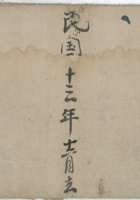 民国十二年十二月立